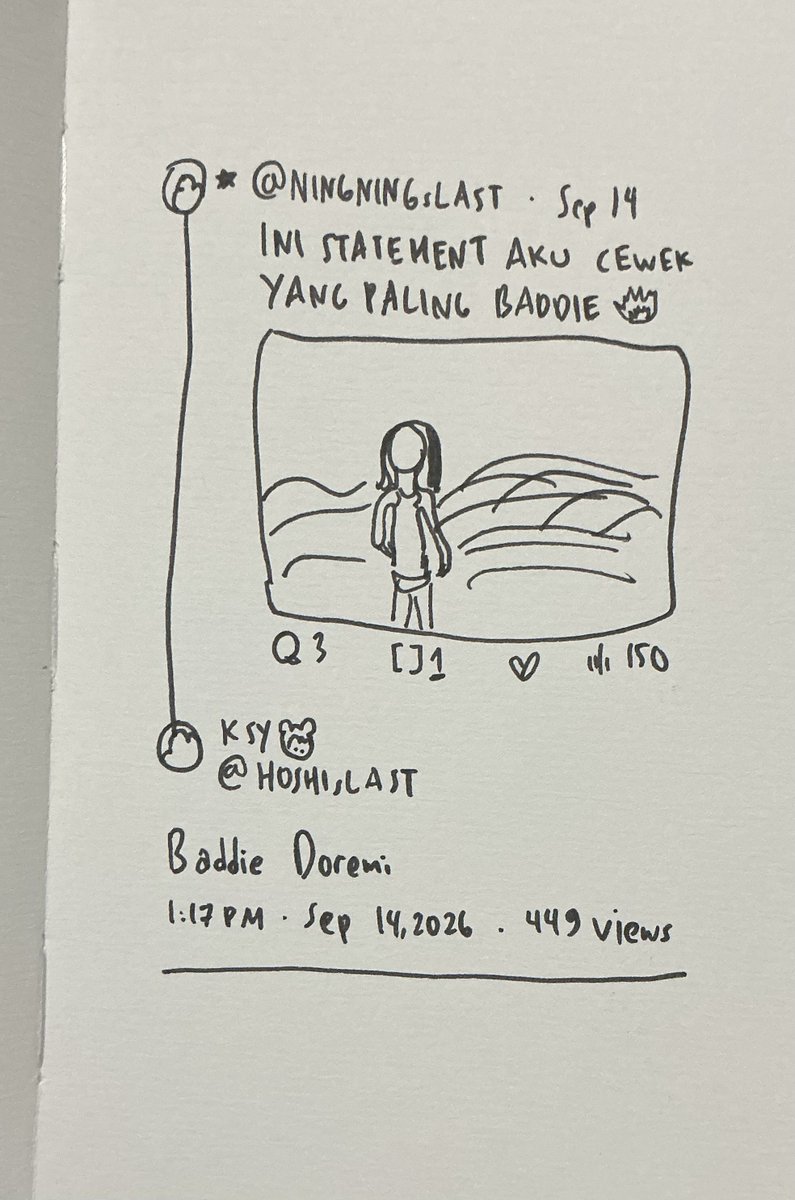 @NINGNINGSLAST · Sep 14
INI STATEMENT AKU CEWEK
YANG PALING BADDIE
3 1 150
KSY
@HOSHISLAST
Baddie Doremi
1:17 PM · Sep 14, 2026 · 449 views